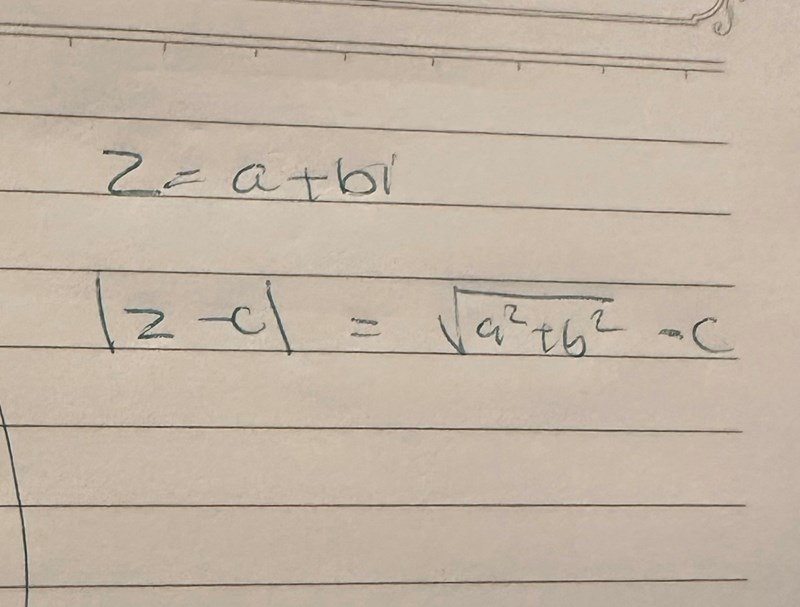 z = a + bi
|z - c| = √(a² + b²) - c